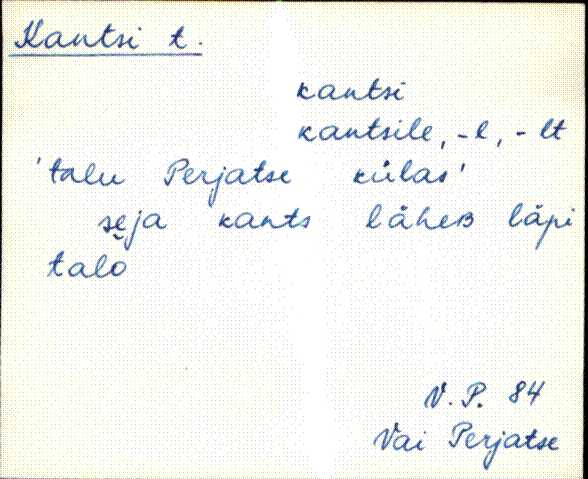 Kantsi t.
kantsi
kantsile, -l, -lt
'talu Perjatse külas'
sẹja kants läheʙ läpi
talo
V. P. 84
Vai Perjatse